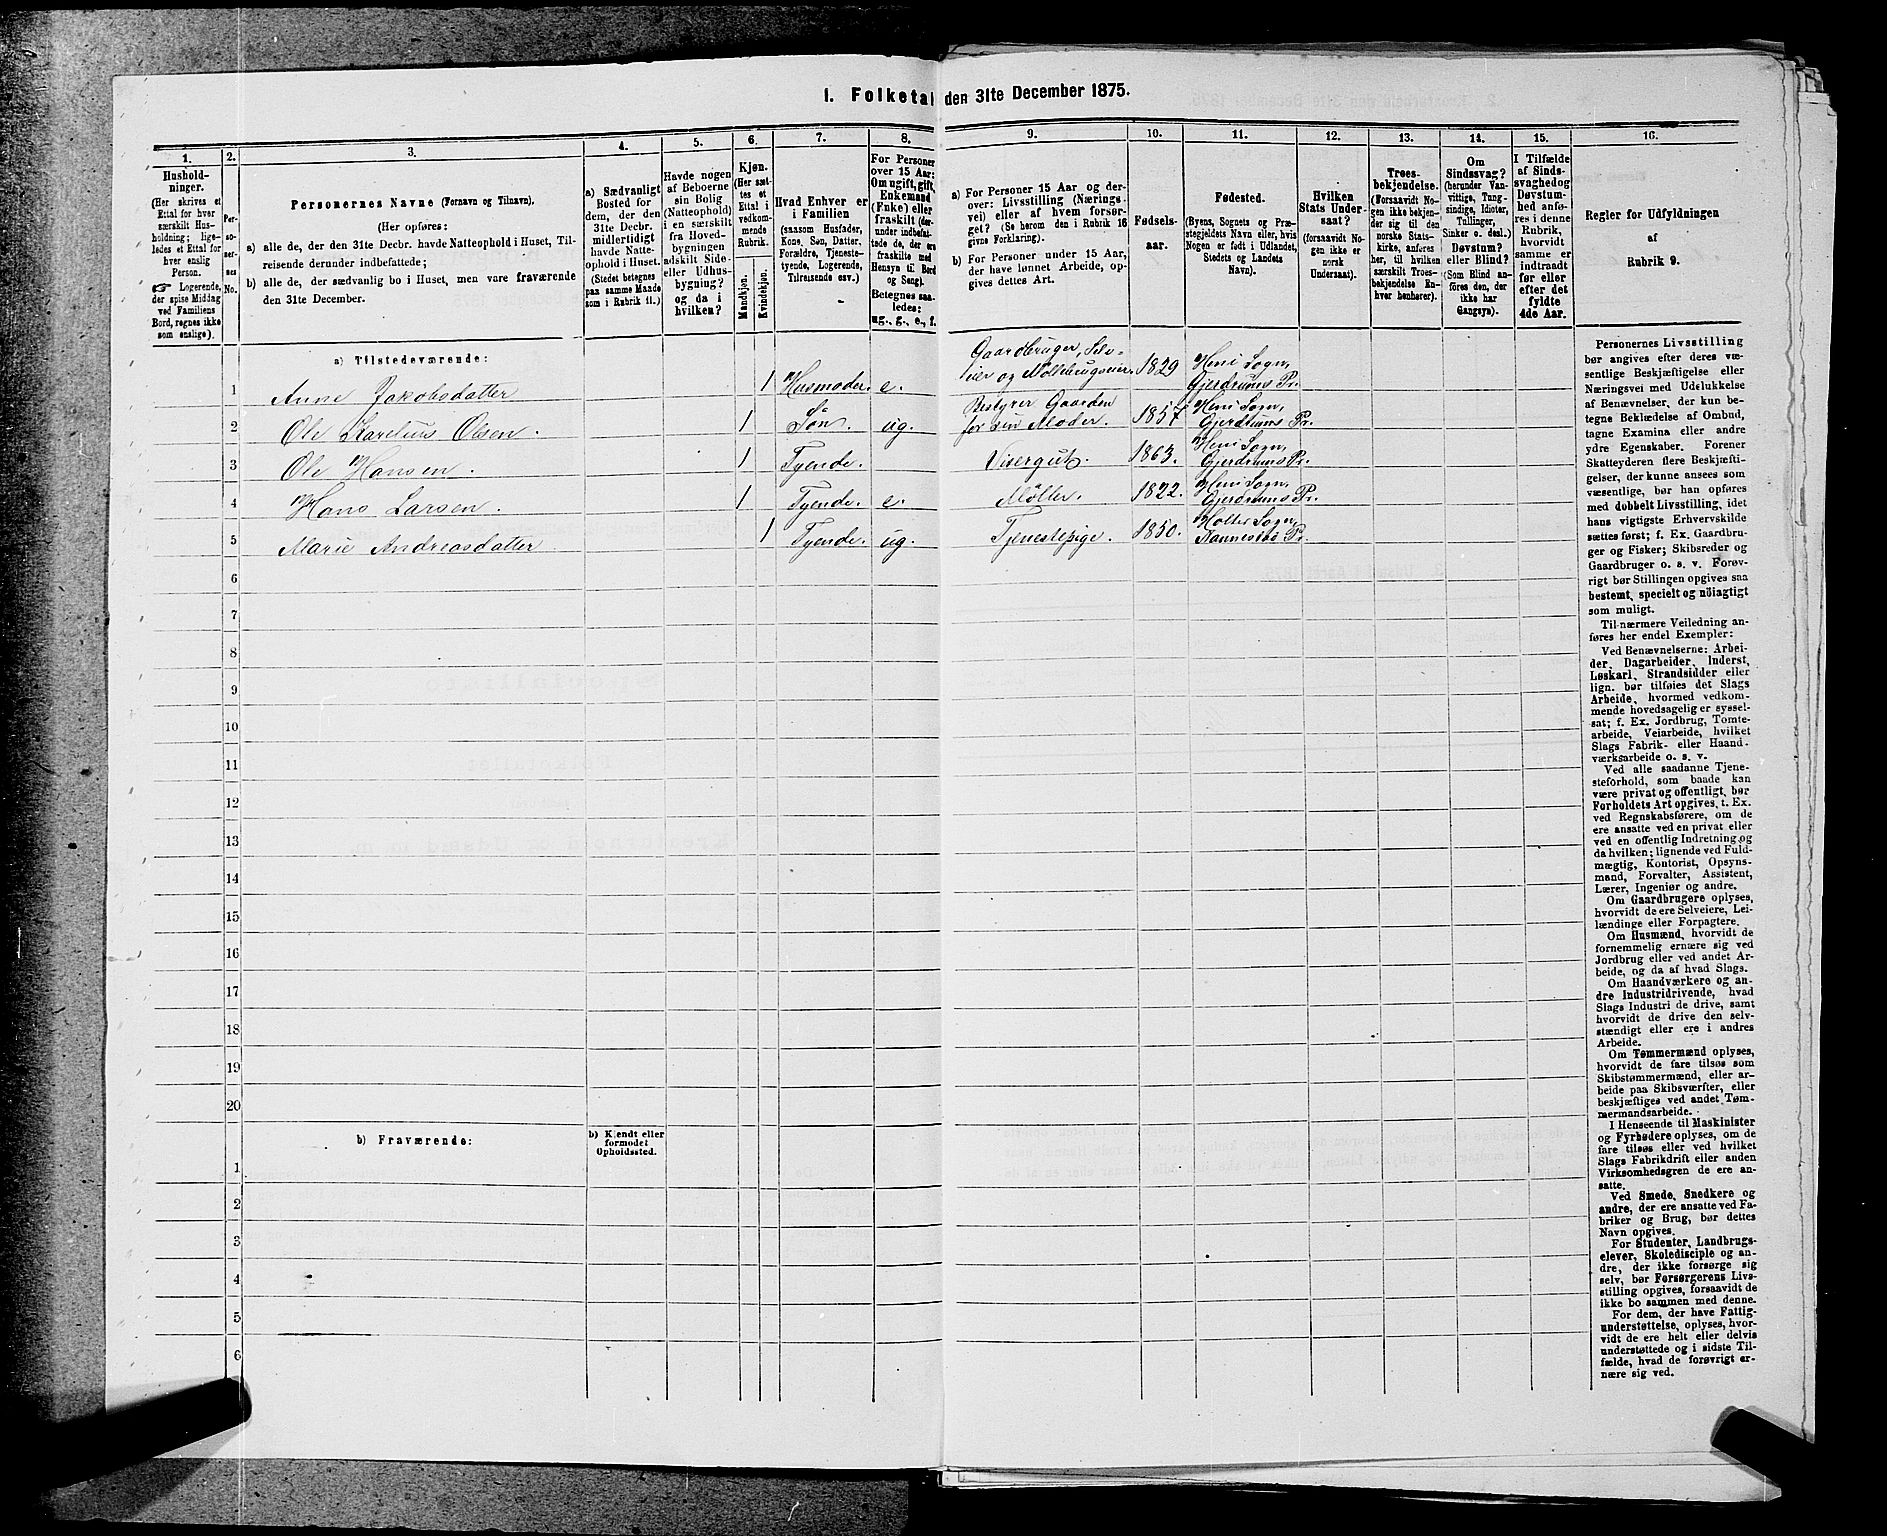 1. Folketal den 31te December 1875.
1.
Hushold-
ninger.
(Her skrives et
Ettal for hver
særskilt Hus-
holdning; lige-
ledes et Ettal for
hver enslig
Person.
☛ Logerende,
der spise Middag
ved Familiens
Bord, regnes ikke
som enslige).
2.
Per-
so-
ner-
nes
No.
3.
Personernes Navne (Fornavn og Tilnavn),
(Her opføres:
a) alle de, der den 31te Decbr. havde Natteophold i Huset, Til-
reisende derunder indbefattede;
b) alle de, der sædvanlig bo i Huset, men vare fraværende
den 31te December.
4.
a) Sædvanligt
Bosted for
dem, der den
31te Decbr.
midlertidigt
havde Natte-
ophold i Huset.
(Stedet betegnes
paa samme Maade
som i Rubrik 11.)
5.
Havde nogen
af Beboerne
sin Bolig
(Natteophold)
i en særskilt
fra Hoved-
bygningen
adskilt Side-
eller Udhus-
bygning?
og da i
hvilken?
6.
Kjøn.
(Her sæt-
tes et
Ettal i
vedkom-
mende
Rubrik.
Mandkjøn.
Kvindekjøn.
7.
Hvad Enhver er
i Familien
(saasom Husfader,
Kone, Søn, Datter,
Forældre, Tjeneste-
tyende, Logerende,
Tilreisende osv.)
8.
For Personer
over 15 Aar:
Om ugift, gift,
Enkemand
(Enke) eller
fraskilt (der-
under indbefat-
tede de, der ere
fraskilte med
Hensyn til Bord
og Seng).
Betegnes saa-
ledes:
ug., g., e., f.
9.
a) For Personer 15 Aar og der-
over: Livsstilling (Nærings-
vei) eller af hvem forsør-
get? (Se herom den i Rubrik 16
givne Forklaring).
b) For Personer under 15 Aar,
der have lønnet Arbeide, op-
gives dettes Art.
10.
Fødsels-
aar.
11.
Fødested.
(Byens, Sognets og Præ-
stegjeldets Navn eller, hvis
Nogen er født i Udlandet,
Stedets og Landets
Navn).
12.
Hvilken
Stats Under-
saat?
(forsaavidt No-
gen ikke er
norsk
Undersaat).
13.
Troes-
bekjendelse.
(Forsaavidt No-
gen ikke bekjen-
der sig til den
norske Stats-
kirke, anføres
her, til hvilken
særskilt Troes-
bekjendelse En-
hver henhører).
14.
Om
Sindssvag?
(herunder Van-
vittige, Tung-
sindige, Idioter,
Tullinger,
Sinker o. desl.)
Døvstum?
eller Blind?
(Som Blind an-
føres den, der
ikke har
Gangsyn).
15.
I Tilfælde
af Sinds-
svaghed og
Døvstum-
hed anfø-
res i denne
Rubrik,
hvorvidt
samme er
indtraadt
før eller
efter det
fyldte
4de Aar.
16.
Regler for Udfyldningen
af
Rubrik 9.
a) Tilstedeværende:
1 Anne Jakobsdatter 1 Husmoder. e. Gaardbruger, Selv-
eier og Møllebrugseier. 1829 Heni Sogn,
Gjerdrums Pr.
2 Ole Karelius Olsen. 1 Søn. ug. Bestyrer Gaarden
for sin Moder. 1857 Heni Sogn,
Gjerdrums Pr.
3 Ole Hansen. 1 Tyende. Visergut. 1863. Heni Sogn,
Gjerdrums Pr.
4 Hans Larsen. 1 Tyende. e. Møller. 1822. Heni Sogn,
Gjerdrums Pr.
5 Marie Andreasdatter 1 Tyende. ug. Tjenestepige. 1850. Holter Sogn,
Nannestad Pr.
6
7
8
9
10
11
12
13
14
15
16
17
18
19
20
b) Fraværende:
b) Kjendt eller
formodet
Opholdssted.
1
2
3
4
5
6
Personernes Livsstilling
bør angives efter deres væ-
sentlige Beskjæftigelse eller
Næringsvei med Udelukkelse
af Benævnelser, der kun be-
tegne Beklædelse af Ombud,
tagne Examina eller andre
ydre Egenskaber. Forener
Skatteyderen flere Beskjæfti-
gelser, der kunne ansees som
væsentlige, bør han opføres
med dobbelt Livsstilling, idet
hans vigtigste Erhvervskilde
sættes først; f. Ex. Gaardbru-
ger og Fisker; Skibsreder og
Gaardbruger o. s. v. Forøv-
rigt bør Stillingen opgives saa
bestemt, specielt og nøiagtigt
som muligt.
Til nærmere Veiledning an-
føres her endel Exempler:
Ved Benævnelserne: Arbei-
der, Dagarbeider, Inderst,
Løskarl, Strandsidder eller
lign. bør tilføies det Slags
Arbeide, hvormed vedkom-
mende hovedsagelig er syssel-
sat; f. Ex. Jordbrug, Tomte-
arbeide, Veiarbeide, hvilket
Slags Fabrik- eller Haand-
værksarbeide o. s. v.
Ved alle saadanne Tjene-
steforhold, som baade kan
være privat og offentligt, bør
Forholdets Art opgives, t. Ex.
ved Regnskabsførere, om de
ere ansatte ved en privat eller
ved en offentlig Indretning og
da hvilken; lignende ved Fuld-
mægtig, Kontorist, Opsyns-
mand, Forvalter, Assistent,
Lærer, Ingeniør og andre.
Om Gaardbrugere oplyses,
hvorvidt de ere Selveiere, Lei-
lændinge eller Forpagtere.
Om Husmænd, hvorvidt de
fornemmelig ernære sig ved
Jordbrug eller ved andet Ar-
beide, og da af hvad Slags.
Om Haandværkere og an-
dre Industridrivende, hvad
Slags Industri de drive, samt
hvorvidt de drive den selv-
stændigt eller ere i andres
Arbeide.
Om Tømmermænd oplyses,
hvorvidt de fare tilsøs som
Skibstømmermænd, eller ar-
beide paa Skibsværfter, eller
beskjæftiges ved andet Tøm-
mermandsarbeide.
I Henseende til Maskinister
og Fyrbødere oplyses, om de
fare tilsøs eller ved hvilket
Slags Fabrikdrift eller anden
Virksomhedsgren de ere an-
satte.
Ved Smede, Snedkere og
andre, der ere ansatte ved Fa-
briker og Brug, bør dettes
Navn opgives.
For Studenter, Landbrugs-
elever, Skoledisciple og an-
dre, der ikke forsørge sig
selv, bør Forsørgerens Livs-
stilling opgives, forsaavidt de
ikke bo sammen med denne.
For dem, der have Fattig-
understøttelse, oplyses, hvor-
vidt de ere helt eller delvis
understøttede og i sidste Til-
fælde, hvad de forøvrigt er-
nære sig ved.